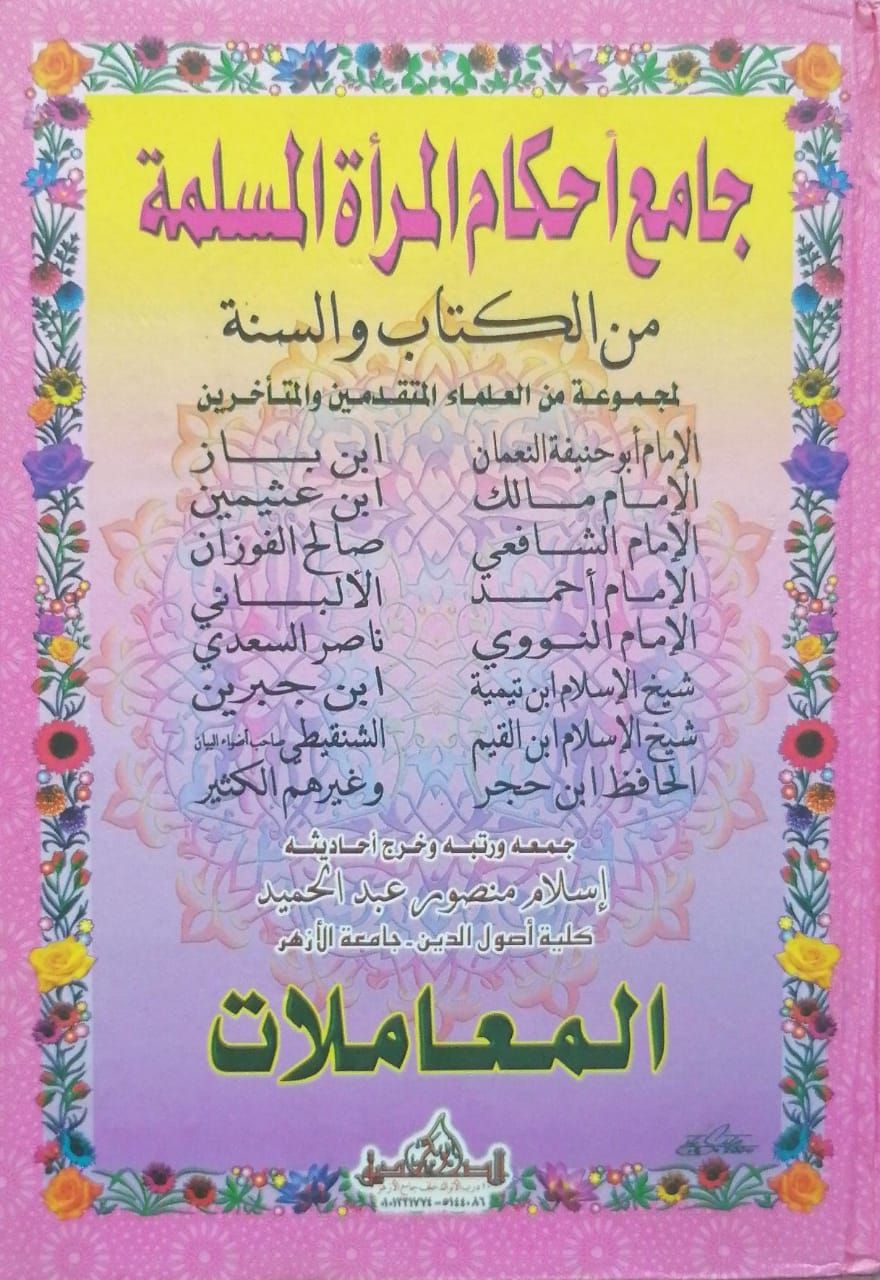 جامع أحكام المرأة المسلمة
من الكتاب والسنة
لمجموعة من العلماء المتقدمين والمتأخرين
الإمام أبو حنيفة النعمان ابن باز
الإمام مالك ابن عثيمين
الإمام الشافعي صالح الفوزان
الإمام أحمد الألباني
الإمام النووي ناصر السعدي
شيخ الإسلام ابن تيمية ابن جبرين
شيخ الإسلام ابن القيم الشنقيطي صاحب أضواء البيان
الحافظ ابن حجر وغيرهم الكثير
جمعه ورتبه وخرج أحاديثه
إسلام منصور عبد الحميد
كلية أصول الدين - جامعة الأزهر
المعاملات
درب الأتراك خلف جامع الأزهر